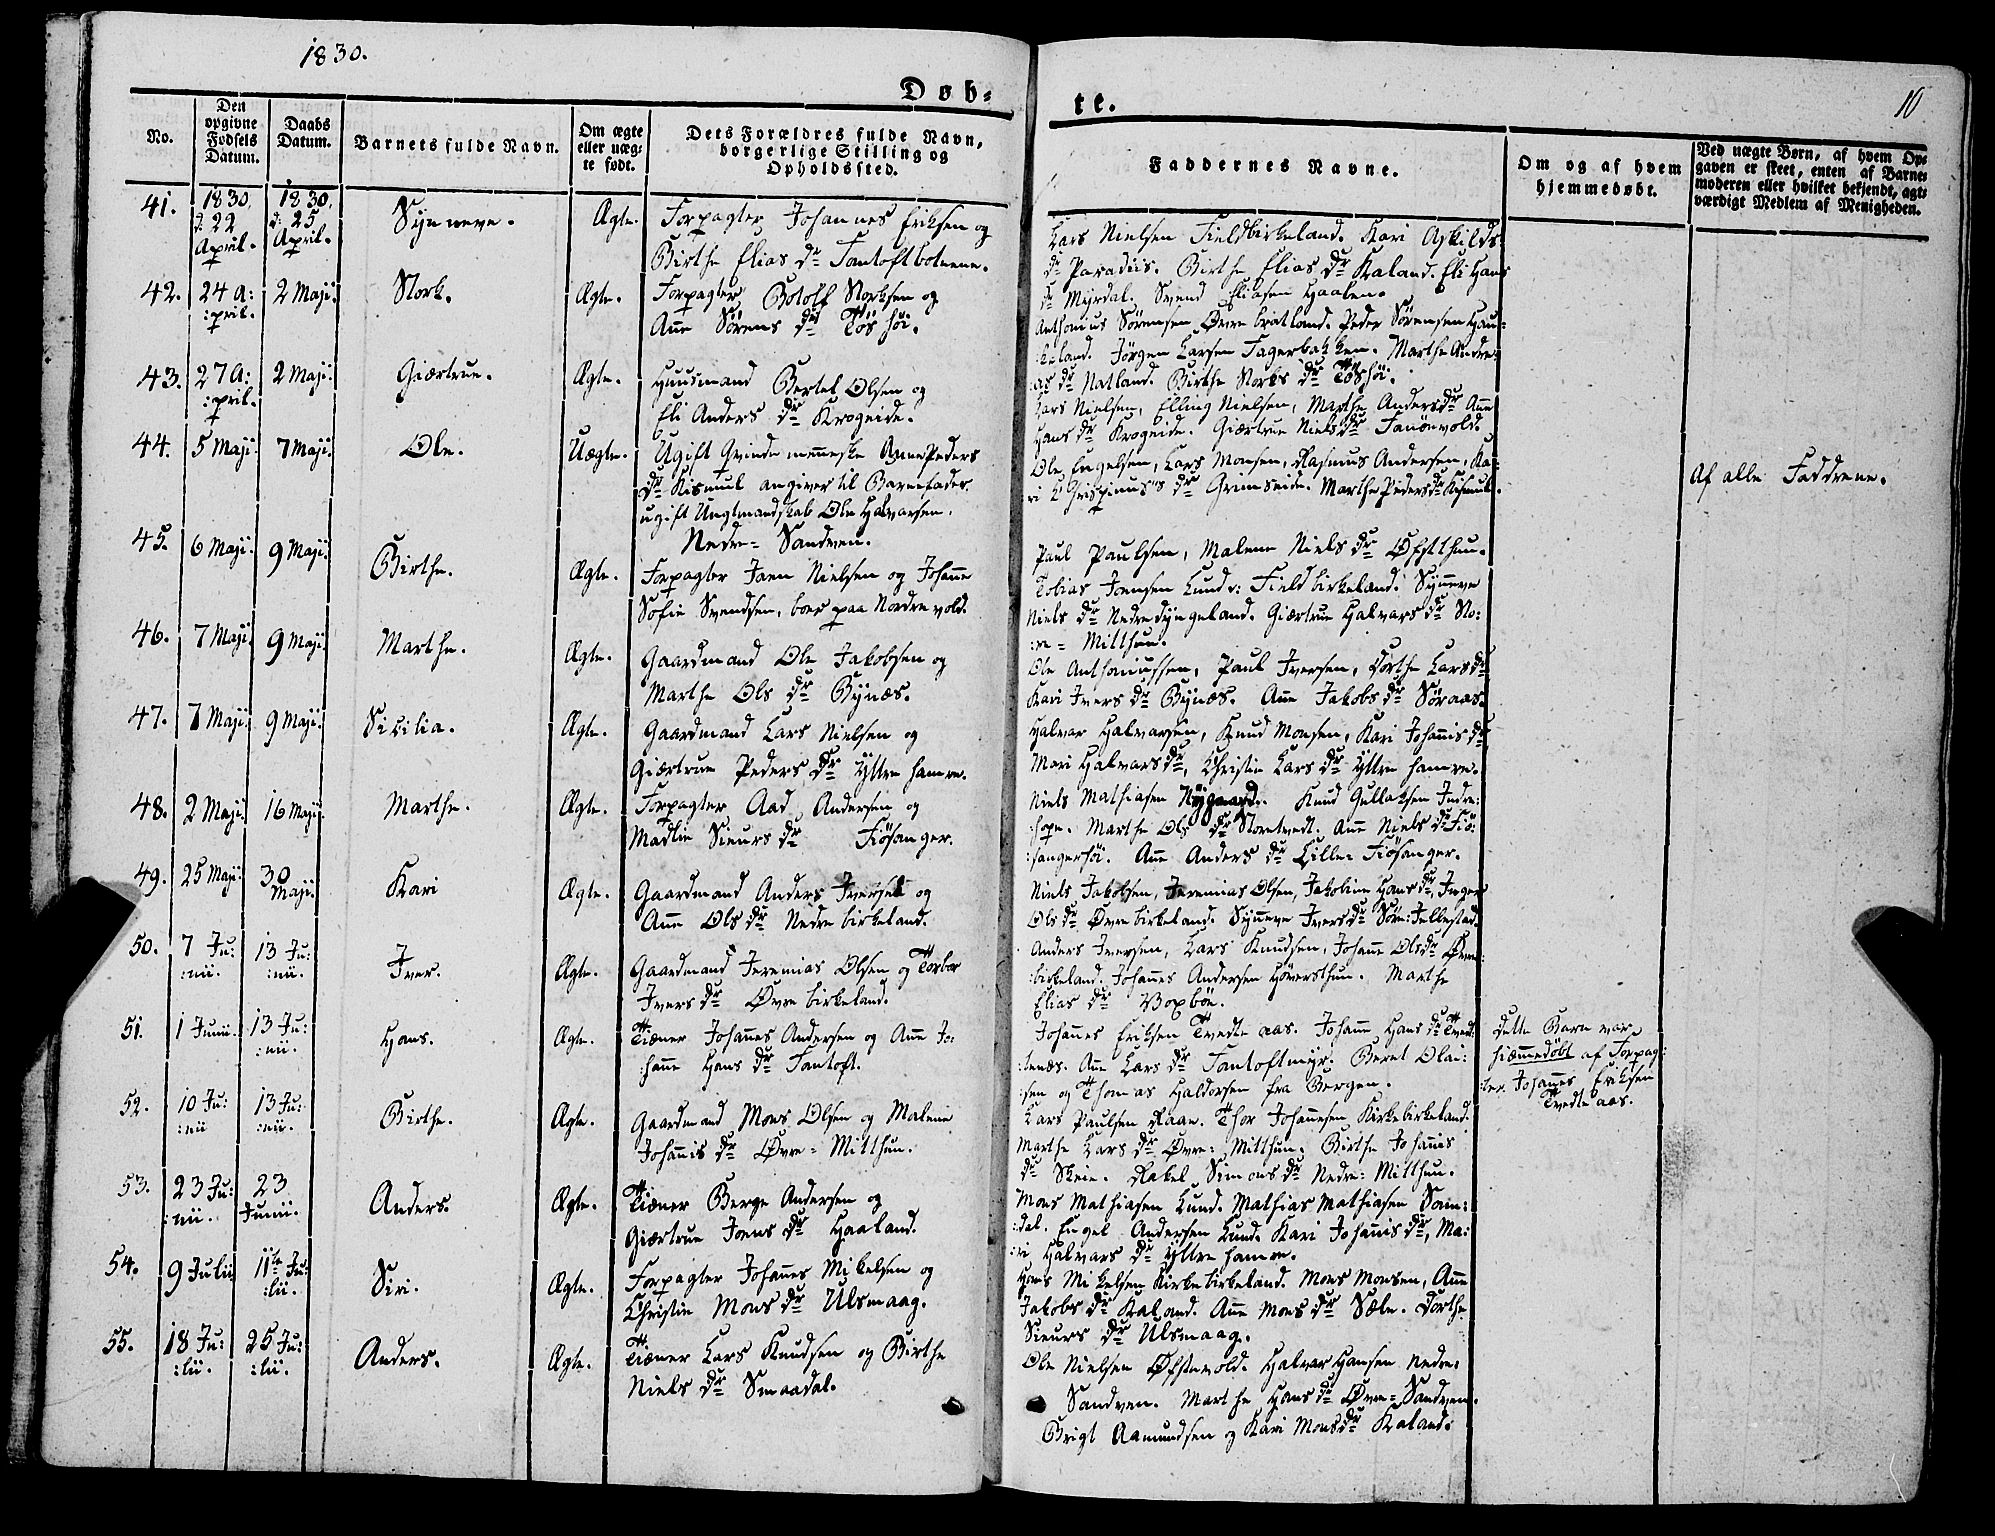 1830.
Døb-
te.
10
No.
Den opgivne Fødsels Datum.
Daabs Datum.
Barnets fulde Navn.
Om ægte eller uægte født.
Dets Forældres fulde Navn, borgerlige Stilling og Opholdssted.
Faddernes Navne.
Om og af hvem hjemmedøbt.
Ved uægte Børn, af hvem Opgaven er skeet, enten af Barnemoderen eller hvilket bekjendt, agtværdigt Medlem af Menigheden.
41. 1830. d: 22 April. 1830. d: 25 April. Synneve. Ægte. Forpagter Johannes Eriksen og
Birthe Elias dr Fantoftbotnene.
Lars Nielsen Fieldbirkeland. Kari Askilds
dr Paradiis. Birthe Elias dr Kaland. Eli Hans
dr Myrdal. Svend Eliasen Haalen.
42. 24 A: :pril. 2 Maji. Stork. Ægte. Forpagter Botolf Storksen og
Anne Sørens dr Tøshøi.
Anthonius Sørensen Øvre bratland. Peder Sørensen Hau:
:keland. Jørgen Larsen Fagerbakken. Marthe Andre:
as dr Natland. Birthe Storks dr Tøshøi.
43. 27 A: :pril. 2 Maji. Giærtrue. Ægte. Huusmand Bertel Olsen og
Eli Anders dr Krogeide.
Lars Nielsen, Elling Nielsen, Marthe Anders dr Anne
Hans dr Krogeide. Giærtrue Niels dr Fanønvold.
44. 5 Maji. 7 Maji. Ole. Uægte. Ugift Qvindemenneske Anne Peders
dr Kismul angiver til Barnefader
ugift Ungmandskab Ole Halvorsen.
Nedre= Sandven.
Ole Engelsen, Lars Monsen, Rasmus Andersen, Ka:
ri Crispinus's dr Grimseide. Marthe Peders dr Kismul.
Af alle Faddrene.
45. 6 Maji. 9 Maji. Birthe. Ægte. Forpagter Joen Nielsen og Johanne
Sofie Svendsen, boer paa Nordre vold.
Paul Paulsen, Malene Niels dr Øfstthun.
Tobias Joensen Lund v: Fieldbirkeland. Synneve
Niels dr Nedre dyngeland. Giærtrue Halvars dr No:
:re= Mitthun.
46. 7 Maji. 9 Maji. Marthe. Ægte. Gaardmand Ole Jakobsen og
Marthe Ols dr Bynæs.
Ole Anthoniussen, Paul Iversen, Dorthe Lars dr
Kari Ivers dr Bynæs. Anne Jakobs dr Søraas.
47. 7 Maji. 9 Maji. Sicilia. Ægte. Gaardmand Lars Nielsen og
Giærtrue Peders dr Yttre hamre.
Halvor Halvorsen, Knud Monsen, Kari Johannis dr
Mari Halvars dr, Christie Lars dr Yttre hamre.
48. 2 Maji. 16 Maji. Marthe. Ægte. Forpagter Aad Andersen og
Madlie Sieurs dr Fiøsanger.
Niels Mathiasen Nygaard. Knud Gullaksen Indre:
:hope. Marthe Ols dr Storetvedt. Anne Niels dr Fiø:
:sangerhøi. Anne Anders dr Lille: Fiøsanger.
49. 25 Maji. 30 Maji. Kari Ægte. Gaardmand Anders Iversen og
Anne Ols dr Nedre birkeland.
Niels Jakobsen, Jeremias Olsen, Jakobine Hans dr, Inger
Ols dr Øvre birkeland. Synneve Ivers dr Søre: Fellestad.
50. 7 Ju: :nii. 13 Ju: :nii. Iver. Ægte. Gaardmand Jeremias Olsen og Torbor
Ivers dr Øvre birkeland.
Anders Iversen, Lars Knudsen, Johanne Ols dr Øvre:
:birkeland. Johannes Andersen Høversthun. Marthe
Elias dr Voxbøe.
51. 1 Junii. 13 Ju: :nii. Hans. Ægte. Tiæner Johannes Andersen og Anne Jo:
:hanne Hans dr Fantoft.
Johannes Eriksen Tvedte aas. Johanne Hans dr Tvedt:
:tenæs. Anne Lars dr Fantoftmyr. Berent Olai:
:sen og Thomas Haldorsen fra Bergen.
Dette Barn var
hiemmedøbt af Forpag:
:ter Johannes Eriksen
Tvedteaas.
52. 10 Ju: :nii 13 Ju: :nii. Birthe. Ægte. Gaardmand Mons Olsen og Malene
Johannis dr Øvre= Mitthun.
Lars Paulsen Raae. Thor Johannesen Kirkebirkeland.
Marthe Lars dr Øvre: Mitthun. Birthe Johannis
dr Skeie. Rakel Simons dr Nedre: Mitthun.
53. 23 Ju: :nii. 23 Junii. Anders. Ægte. Tiæner Berge Andersen og
Giærtrue Joens dr Haaland.
Mons Mathiasen Lund. Mathias Mathiasen Som:
:dal. Engel Andersen Lund. Kari Johannis dr, Ma:
:ri Halvars dr Yttre hamre.
54. 9 Julii 11te Ju: :lii. Siri. Ægte. Forpagter Johannes Mikelsen og
Christie Mons dr Ulsmaag.
Hans Mikelsen Kirkebirkeland. Mons Monsen, Anne
Jakobs dr Kaland. Anne Mons dr Sæle. Dorthe
Sieurs dr Ulsmaag.
55. 18 Ju: :lii. 25 Ju: :lii. Anders. Ægte. Tiæner Lars Knudsen og Birthe
Niels dr Smaadal.
Ole Nielsen Øfstevold. Halvor Hansen Nedre:
Sandven. Marthe Hans dr Øvre= Sandven.
Brigt Aamundsen og Kari Mons dr Kaland.